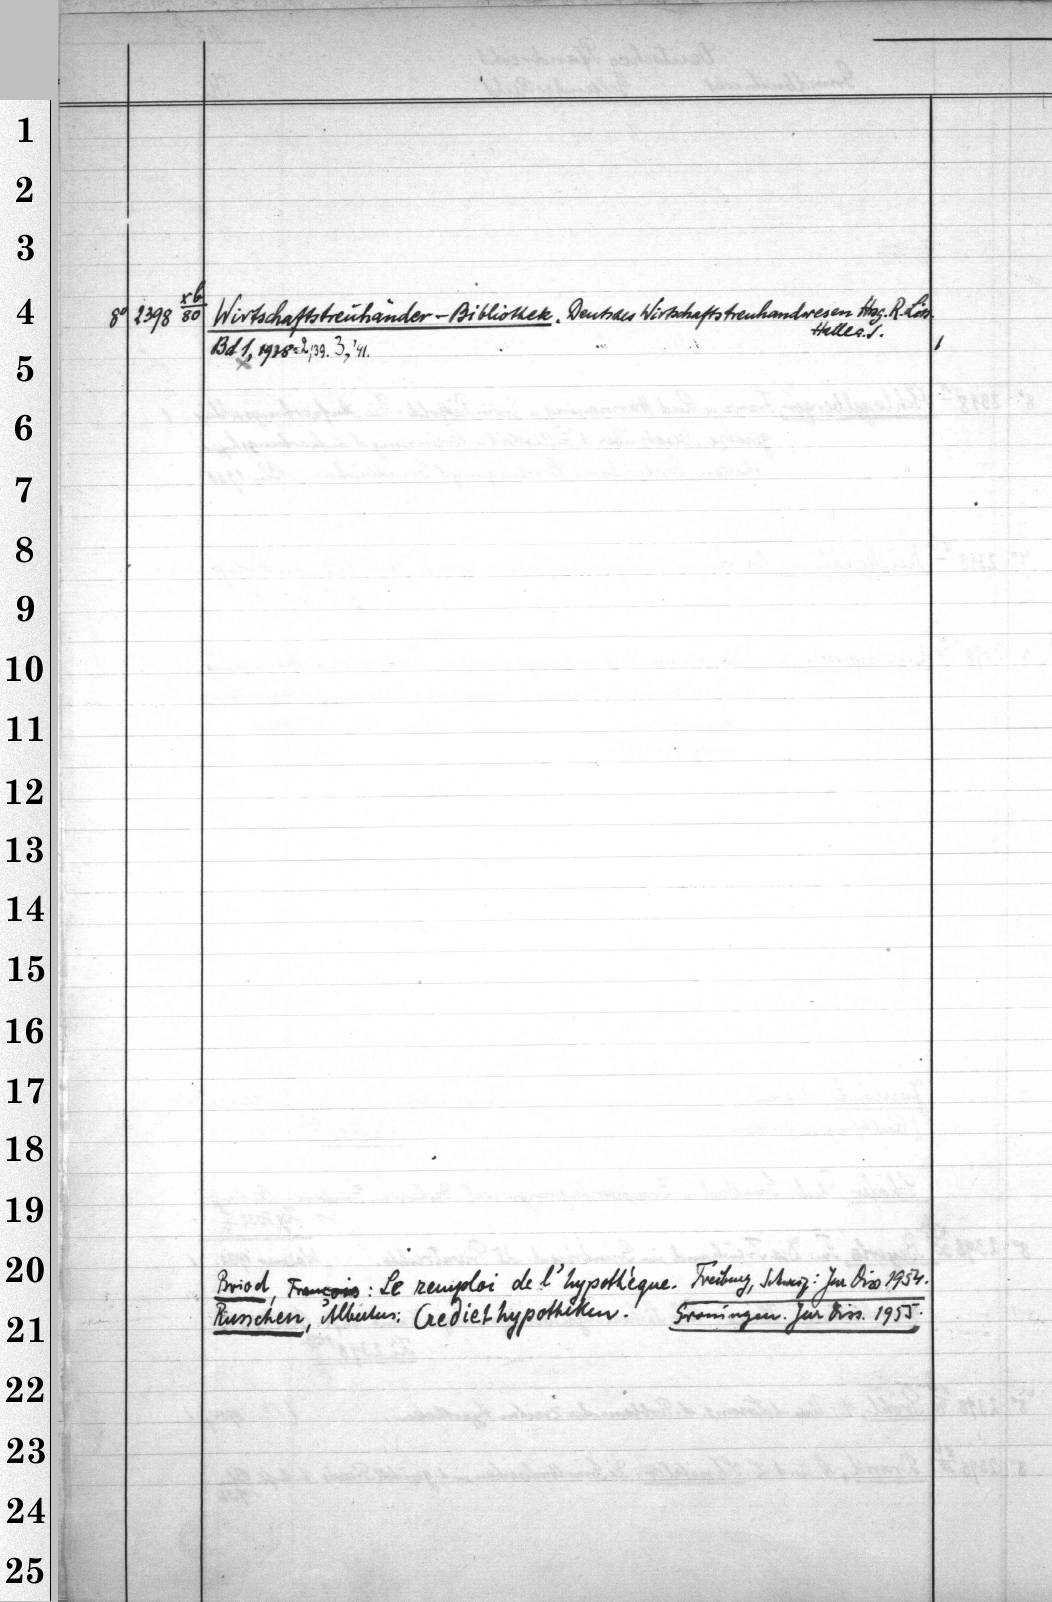 1
2
3
4
8° 2398 xb/80 Wirtschaftstreuhänder-Bibliothek. Deutsches Wirtschaftstreuhandwesen Hrsg. R. Lös.
Halle a. S.
Bd 1, 1938= 2,'39. 3,'41.
5
6
7
8
9
10
11
12
13
14
15
16
17
18
19
20
Briod, François: Le remploi de l'hypothèque. Freiburg, Schweiz: Jur Diss 1954.
21
Russchen, Albertus: Crediethypotheken. Groningen. Jur Diss. 1955.
22
23
24
25